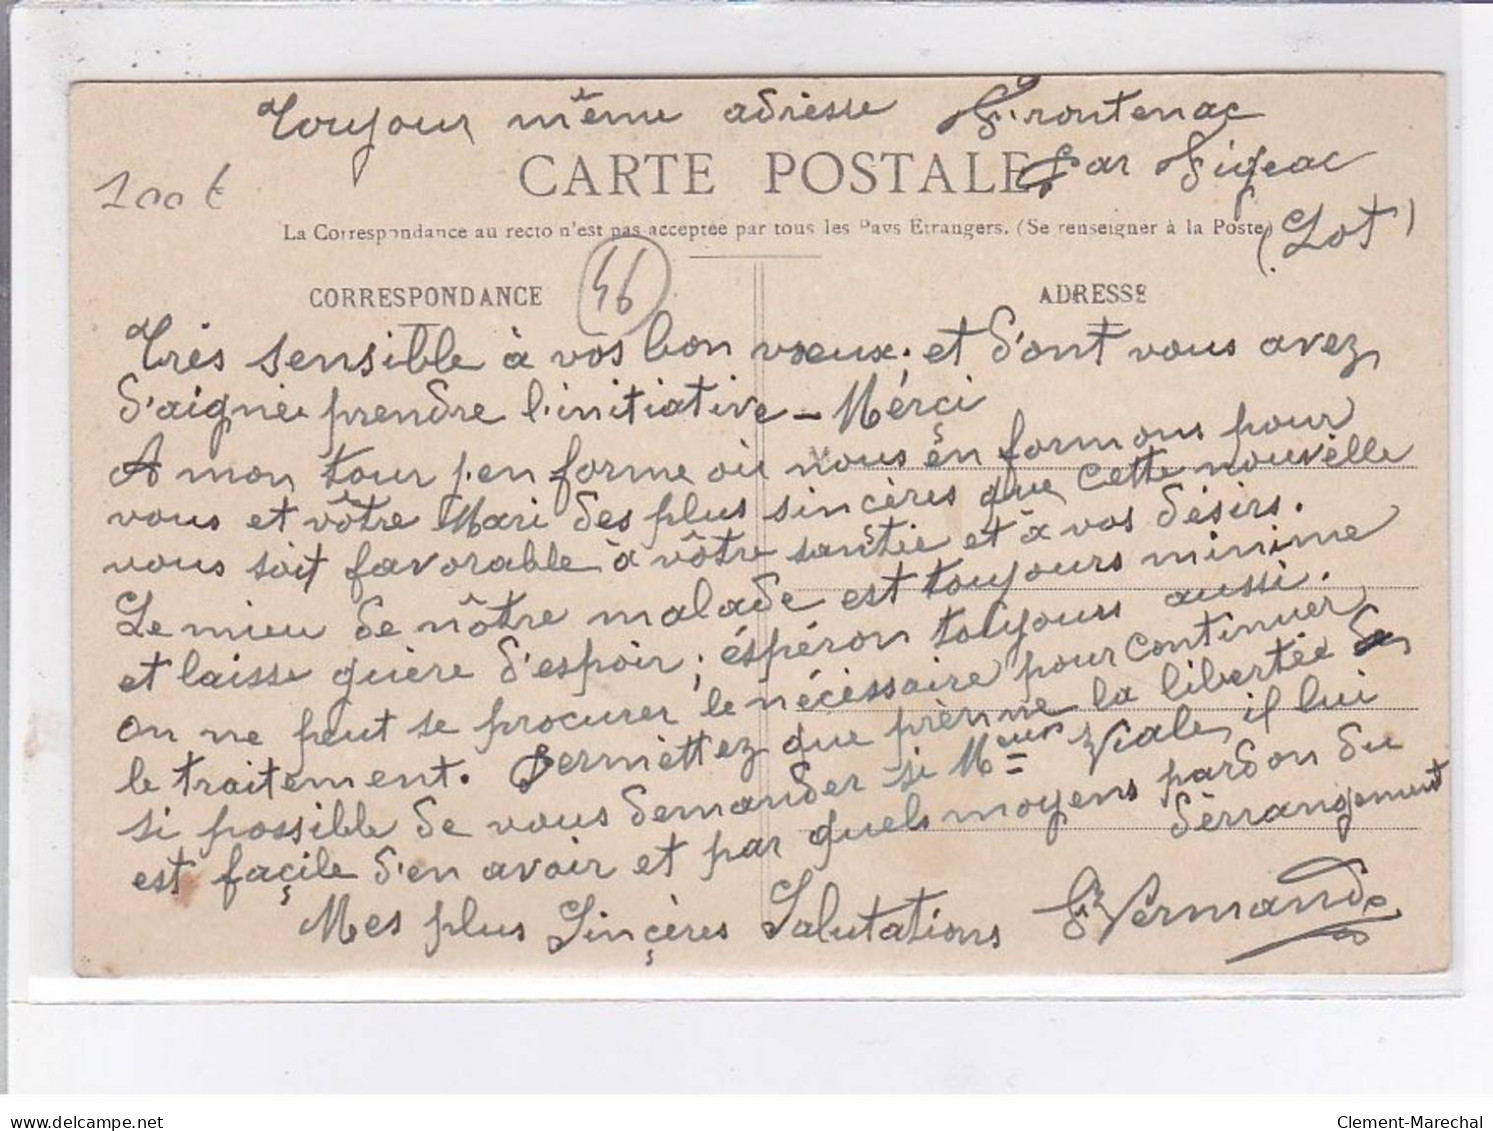 Toujour même adrèsse Frontenac
CARTE POSTALE
par Figeac
100 €
La Correspondance au recto n'est pas acceptée par tous les Pays Etrangers. (Se renseigner à la Poste)
(Lot)
CORRESPONDANCE
46
ADRESSE
Très sensible à vos bon voeux; et d'ont vous avez
d'aignée prendre l'initiative - Mérci
A mon tour j'en forme où nous ën formons pour
vous et vôtre Mari des plus sincères que cette nouvèlle
vous soit favorable à vôtre santée et à vos désirs.
Le mieu de nôtre malade est toujours minime
et laisse guière d'espoir; éspéron toujours aussi.
on ne peut se procurer le nécèssaire pour continuer
le traitement. Permèttez que prènne la libertée de
si possible de vous demander si Meur Viale, il lui
est façile d'en avoir et par quels moyens pardon du
dèrrangement
Mes plus Sinçères Salutations F Vermande
delcampe.net
Clement-Marechal